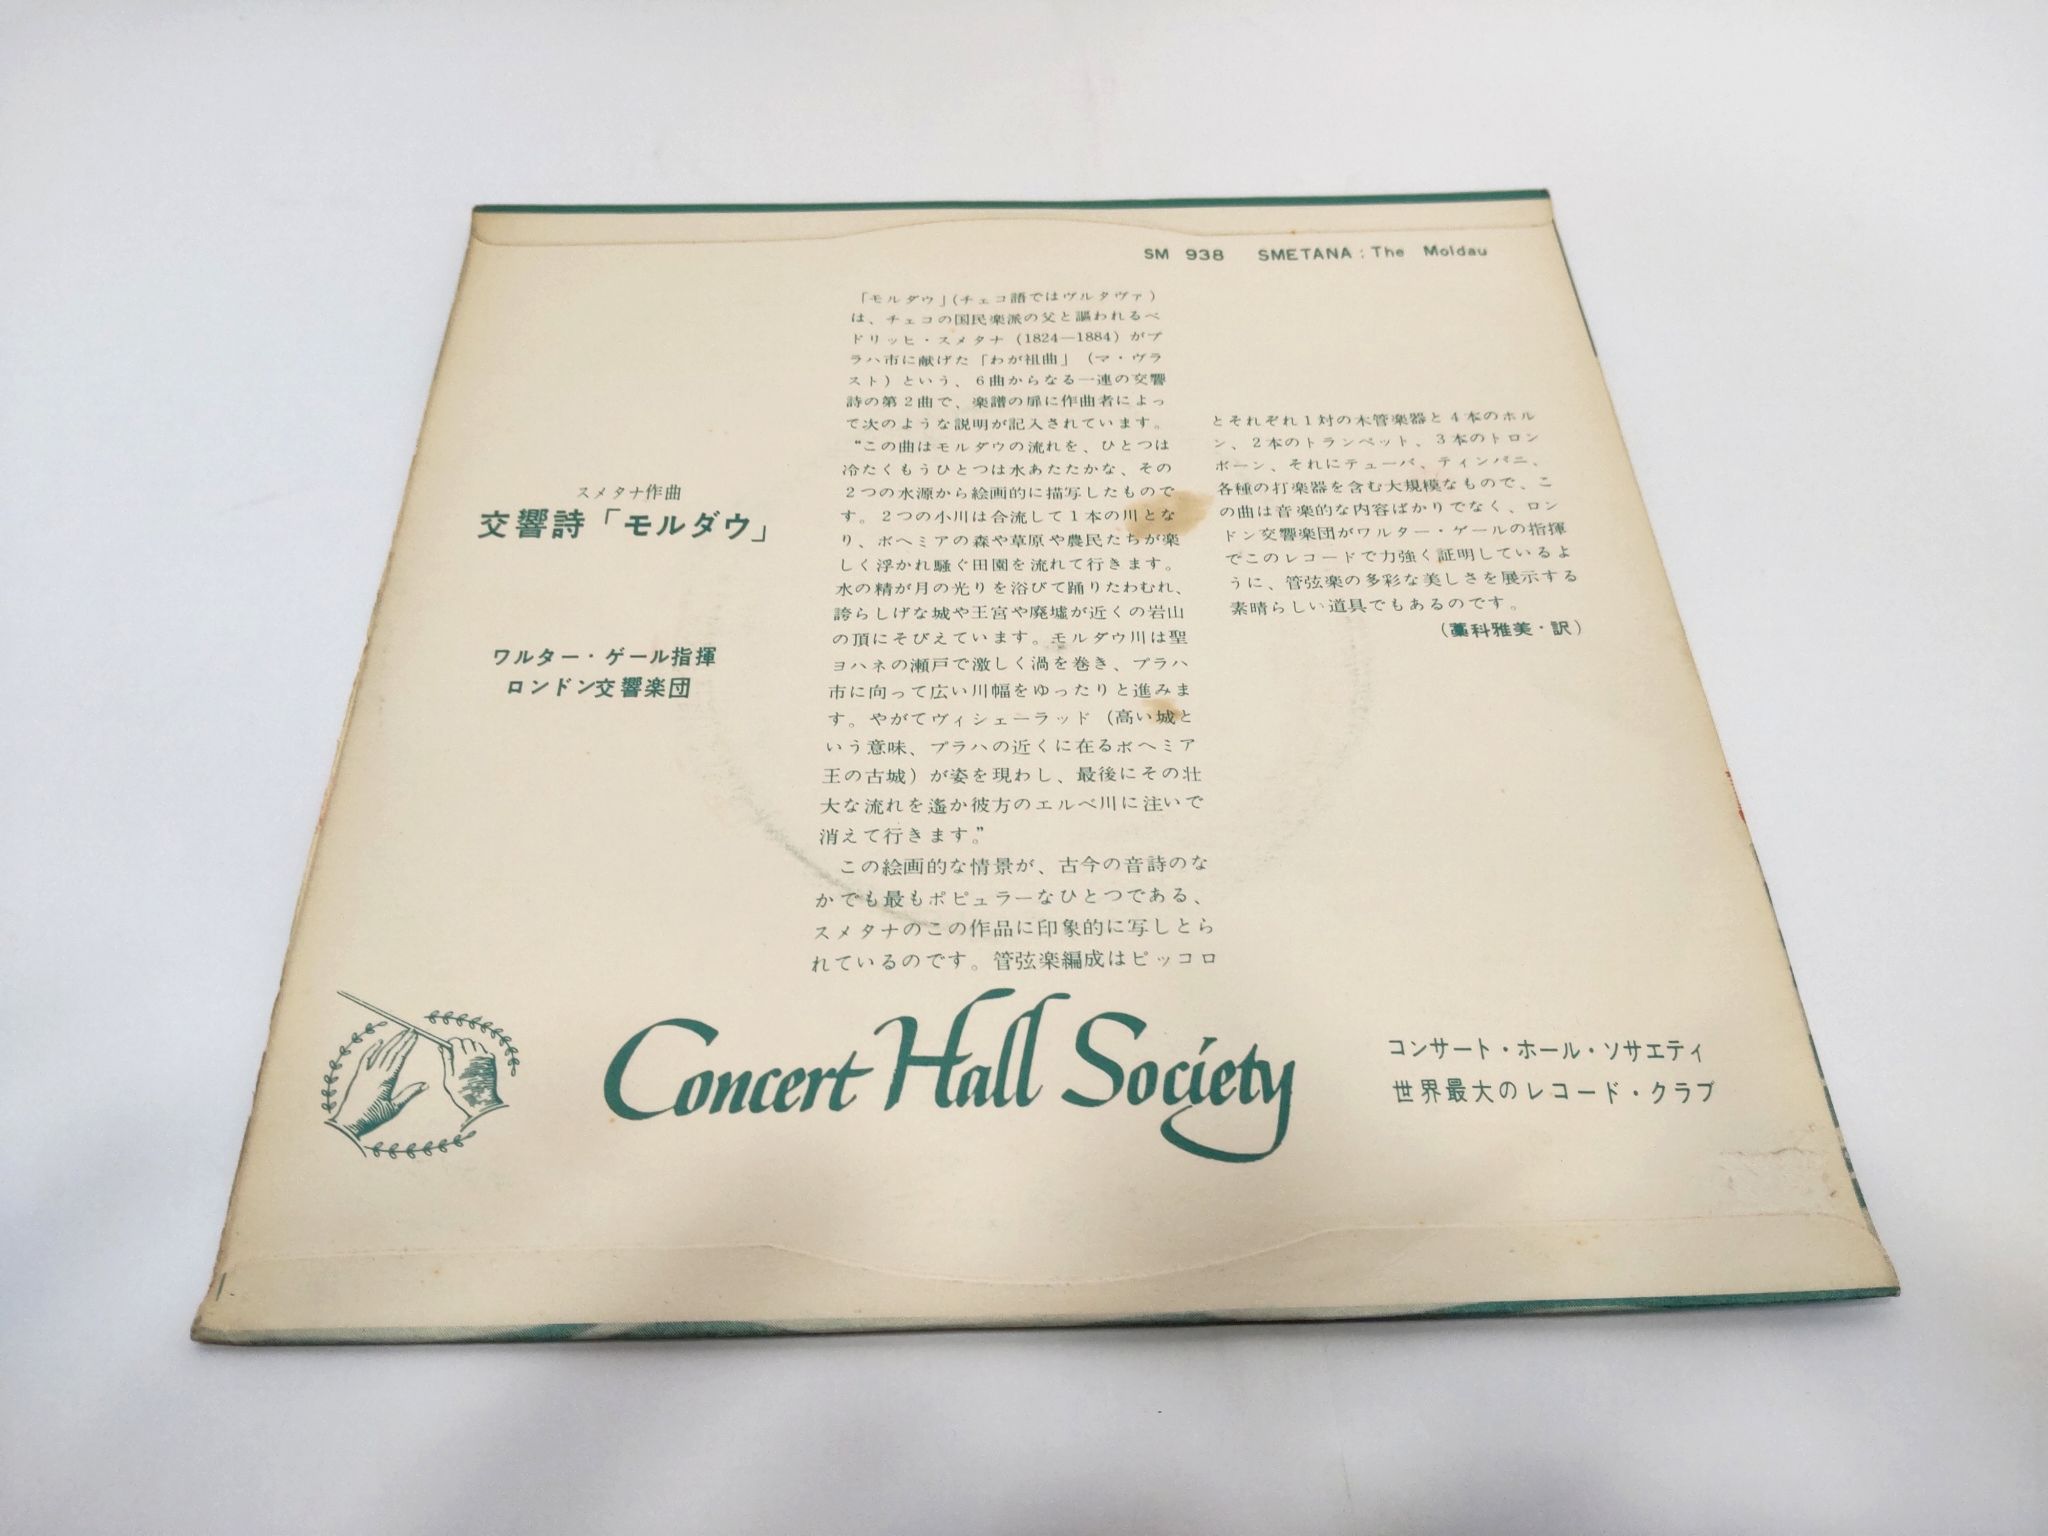 SM 938 SMETANA : The Moldau
スメタナ作曲
交響詩「モルダウ」
ワルター・ゲール指揮
ロンドン交響楽団
「モルダウ」(チェコ語ではヴルタヴァ)
は、チェコの国民楽派の父と謳われるベ
ドリッヒ・スメタナ (1824—1884) がプ
ラハ市に献げた「わが祖曲」(マ・ヴラ
スト) という、6曲からなる一連の交響
詩の第2曲で、楽譜の扉に作曲者によっ
て次のような説明が記入されています。
“この曲はモルダウの流れを、ひとつは
冷たくもうひとつは水あたたかな、その
2つの水源から絵画的に描写したもので
す。2つの小川は合流して1本の川とな
り、ボヘミアの森や草原や農民たちが楽
しく浮かれ騒ぐ田園を流れて行きます。
水の精が月の光りを浴びて踊りたわむれ、
誇らしげな城や王宮や廃墟が近くの岩山
の頂にそびえています。モルダウ川は聖
ヨハネの瀬戸で激しく渦を巻き、プラハ
市に向って広い川幅をゆったりと進みま
す。やがてヴィシェーラッド (高い城と
いう意味、プラハの近くに在るボヘミア
王の古城) が姿を現わし、最後にその壮
大な流れを遙か彼方のエルベ川に注いで
消えて行きます。”
この絵画的な情景が、古今の音詩のな
かでも最もポピュラーなひとつである、
スメタナのこの作品に印象的に写しとら
れているのです。管弦楽編成はピッコロ
とそれぞれ1対の木管楽器と4本のホル
ン、2本のトランペット、3本のトロン
ボーン、それにテューバ、ティンパニ、
各種の打楽器を含む大規模なもので、こ
の曲は音楽的な内容ばかりでなく、ロン
ドン交響楽団がワルター・ゲールの指揮
でこのレコードで力強く証明しているよ
うに、管弦楽の多彩な美しさを展示する
素晴らしい道具でもあるのです。
(藁科雅美・訳)
Concert Hall Society
コンサート・ホール・ソサエティ
世界最大のレコード・クラブ